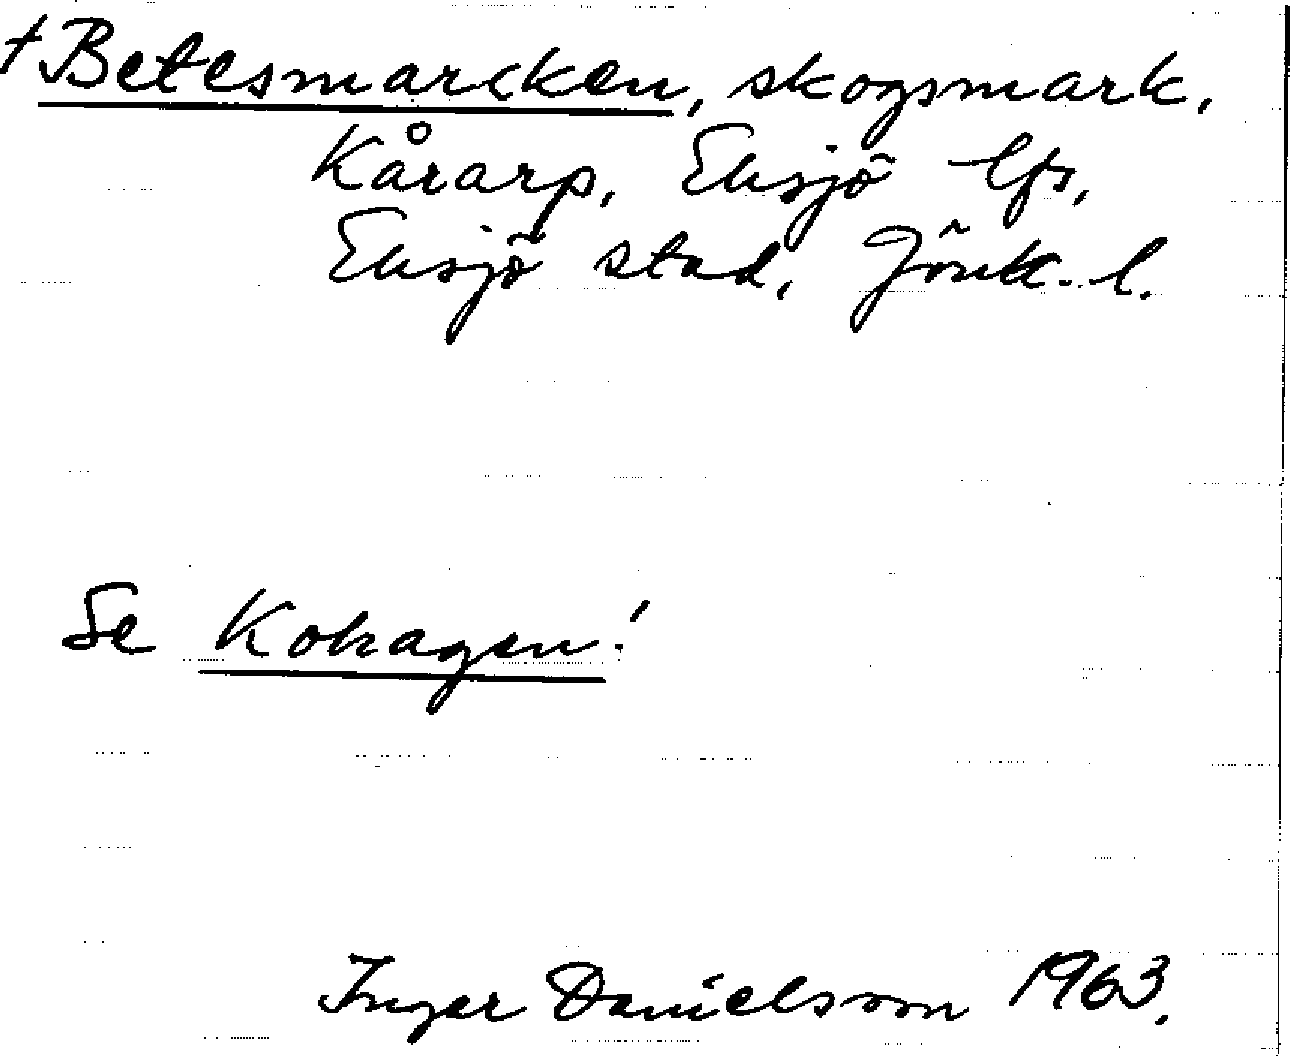 † Betesmarcken, skogsmark,
Kårarp, Eksjö lfs,
Eksjö stad, Jönk. l.
Se Kohagen!
Inger Danielsson 1963.